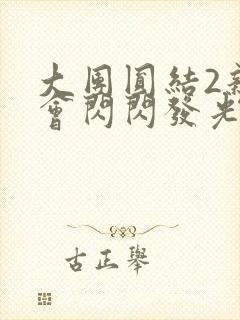 大團圓結2
會閃閃發光
古正舉